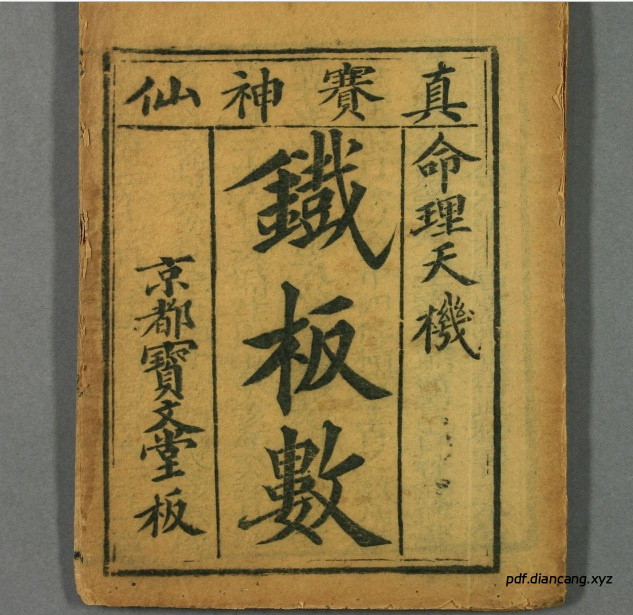 真賽神仙
命理天機
鐵板數
京都寶文堂板
pdf.diancang.xyz